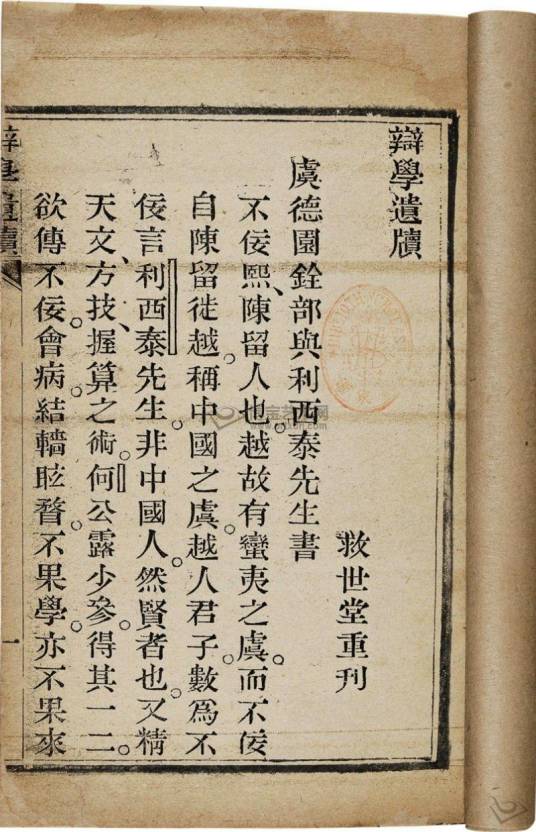 辯學遺牘
救世堂重刊
虞德園銓部與利西泰先生書
不佞熙、陳留人也。越故有蠻夷之虞。而不佞
自陳留徙越。稱中國之虞。越人君子。數爲不
佞言利西泰先生。非中國人。然賢者也。又精
天文、方技、握算之術。何公露少參。得其一二。
欲傳不佞。會病結轖眩瞀。不果學。亦不果來
一